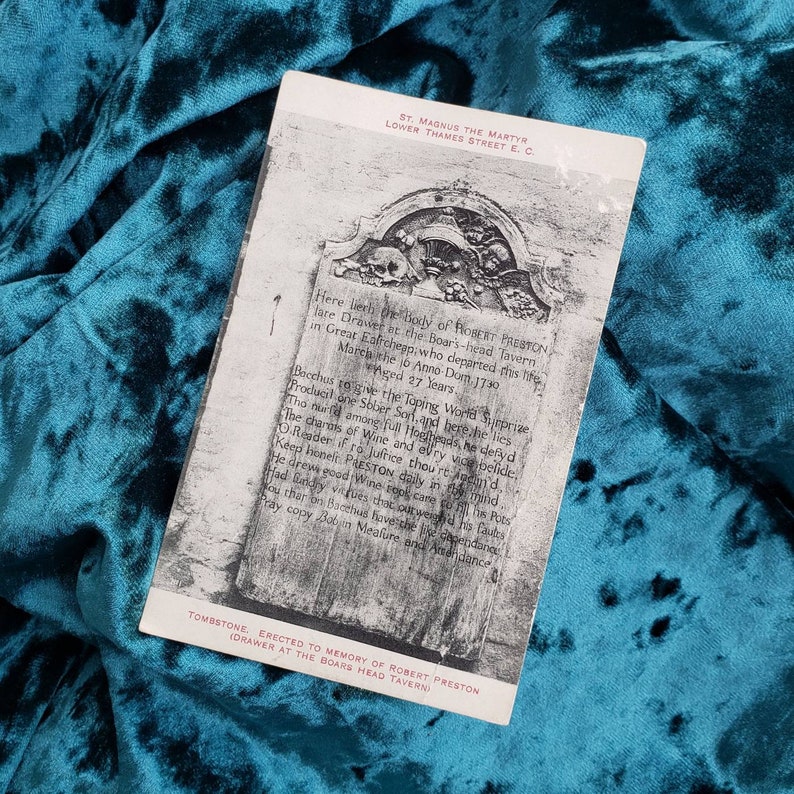 ST. MAGNUS THE MARTYR
LOWER THAMES STREET E. C.
Here lieth the Body of ROBERT PRESTON
late Drawer at the Boar's-head Tavern
in Great Eaſtcheap, who departed this life
March the 16 Anno-Dom. 1730
Aged 27 Years
Bacchus to give the Toping World Surprize,
Produc'd one Sober Son, and here he lies
Tho nurſ'd among full Hogſheads, he defy'd
The charms of Wine and ev'ry vice beſide.
O Reader if to Juſtice thou'rt inclin'd
Keep honeſt PRESTON daily in thy mind
He drew good Wine, took care to fill his Pots
Had ſundry virtues that outweigh'd his faults
You that on Bacchus have the like dependance
Pray copy Bob in Meaſure and Attendance
TOMBSTONE. ERECTED TO MEMORY OF ROBERT PRESTON
(DRAWER AT THE BOARS HEAD TAVERN)